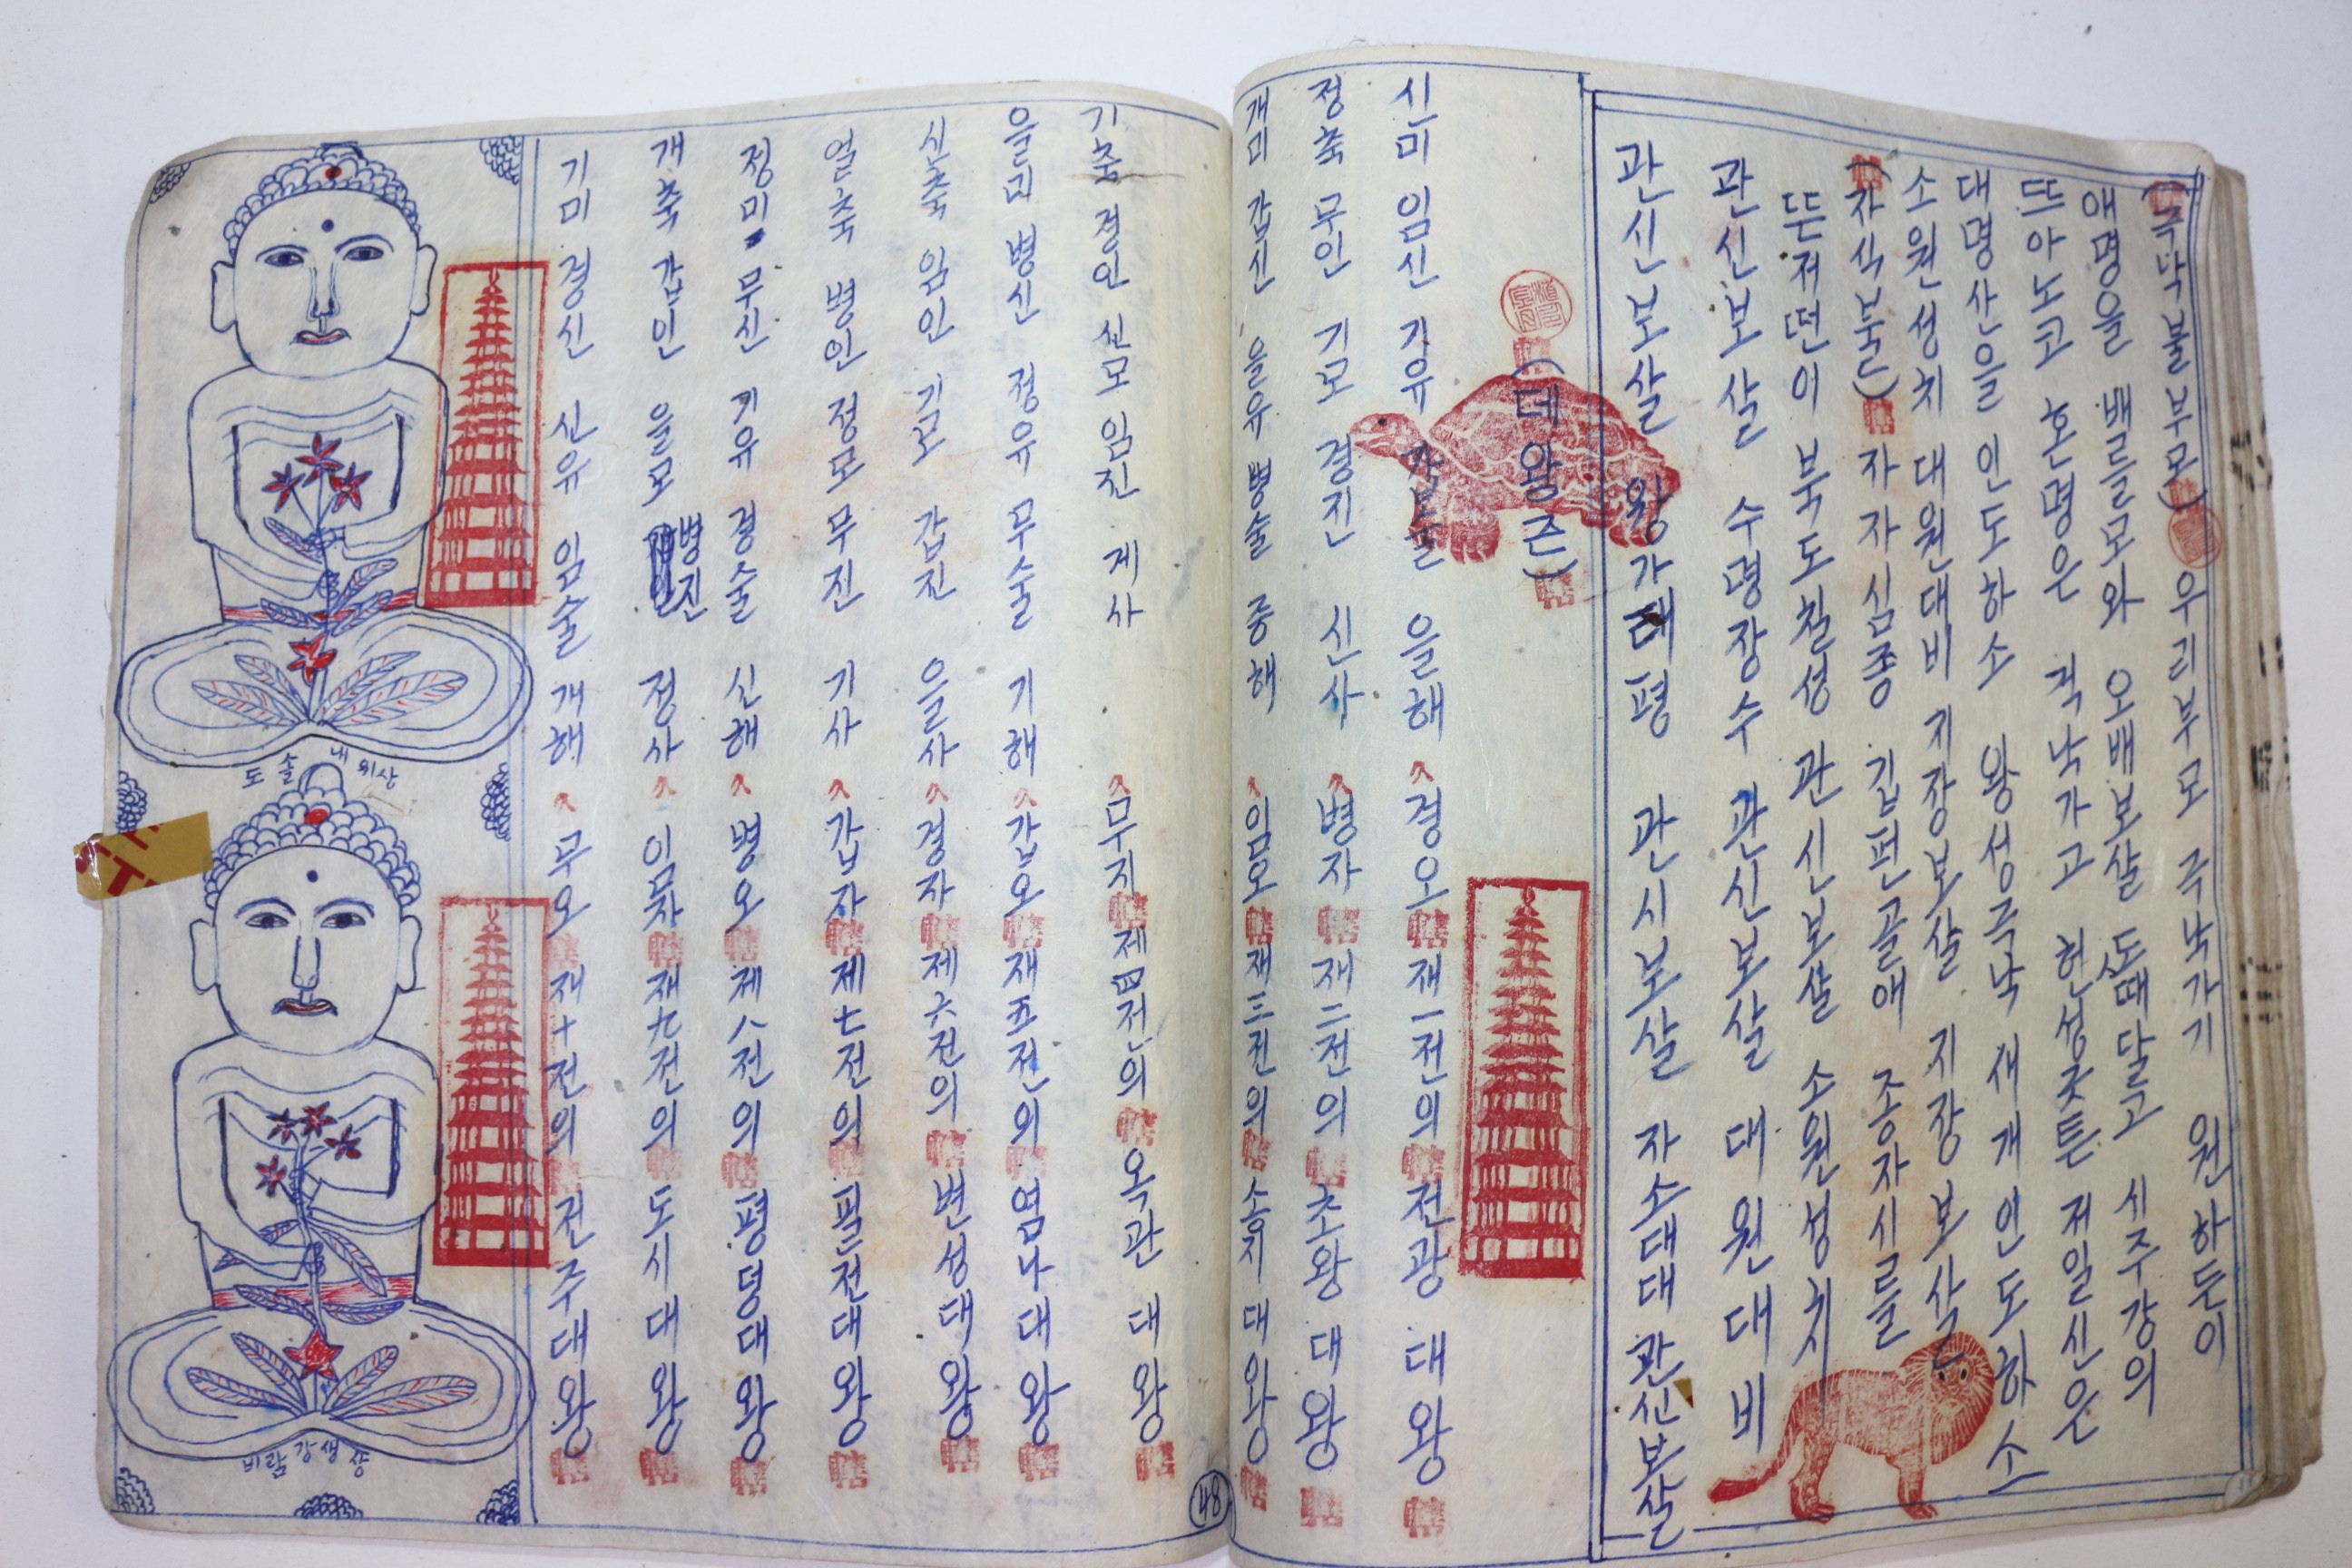 (극낙불부모) 우리부모 극낙가기 원하든이
애명을 배를모와 오배보살 도때달고 세주강의
뜨아노고 혼명은 걱낙가고 현성긋튼 제일신은
대명산을 인도하소 왕성극낙 새개인도하소
소원성치 대원대비 지장보살 지장보살
(자식불근) 자자심중 깁펀골애 종자시르를
뜬저떤이 북도칠성 관신보살 소원성취
관신보살 수명장수 관신보살 대원대비
관신보살 왕가태평 관시보살 자소대대 관신보살
(데왕즌)
신미 임신 기유 갑술 을해 경오 재一전의 전광대왕
정축 무인 기모 경진 신사 병자 재二전의 초왕대왕
개미 갑신 을유 병술 중해 임오 재三전의 소지대왕
기축 경인 신모 임진 계사 무자 제四전의 옥관대왕
을미 병신 정유 무술 기해 갑오 재五전의 염나대왕
신축 임인 기모 갑진 을사 경자 제六전의 변성대왕
얼축 병인 정모 무진 기사 갑자 제七전의 대왕
정미 무신 기유 경술 신해 병오 제八전의 평덩대왕
개축 갑인 을모 병진 정사 임자 재九전의 도시대왕
기미 경신 신유 임술 개해 무오 재十전의 전주대왕
도솔내의상
비람강생상
48